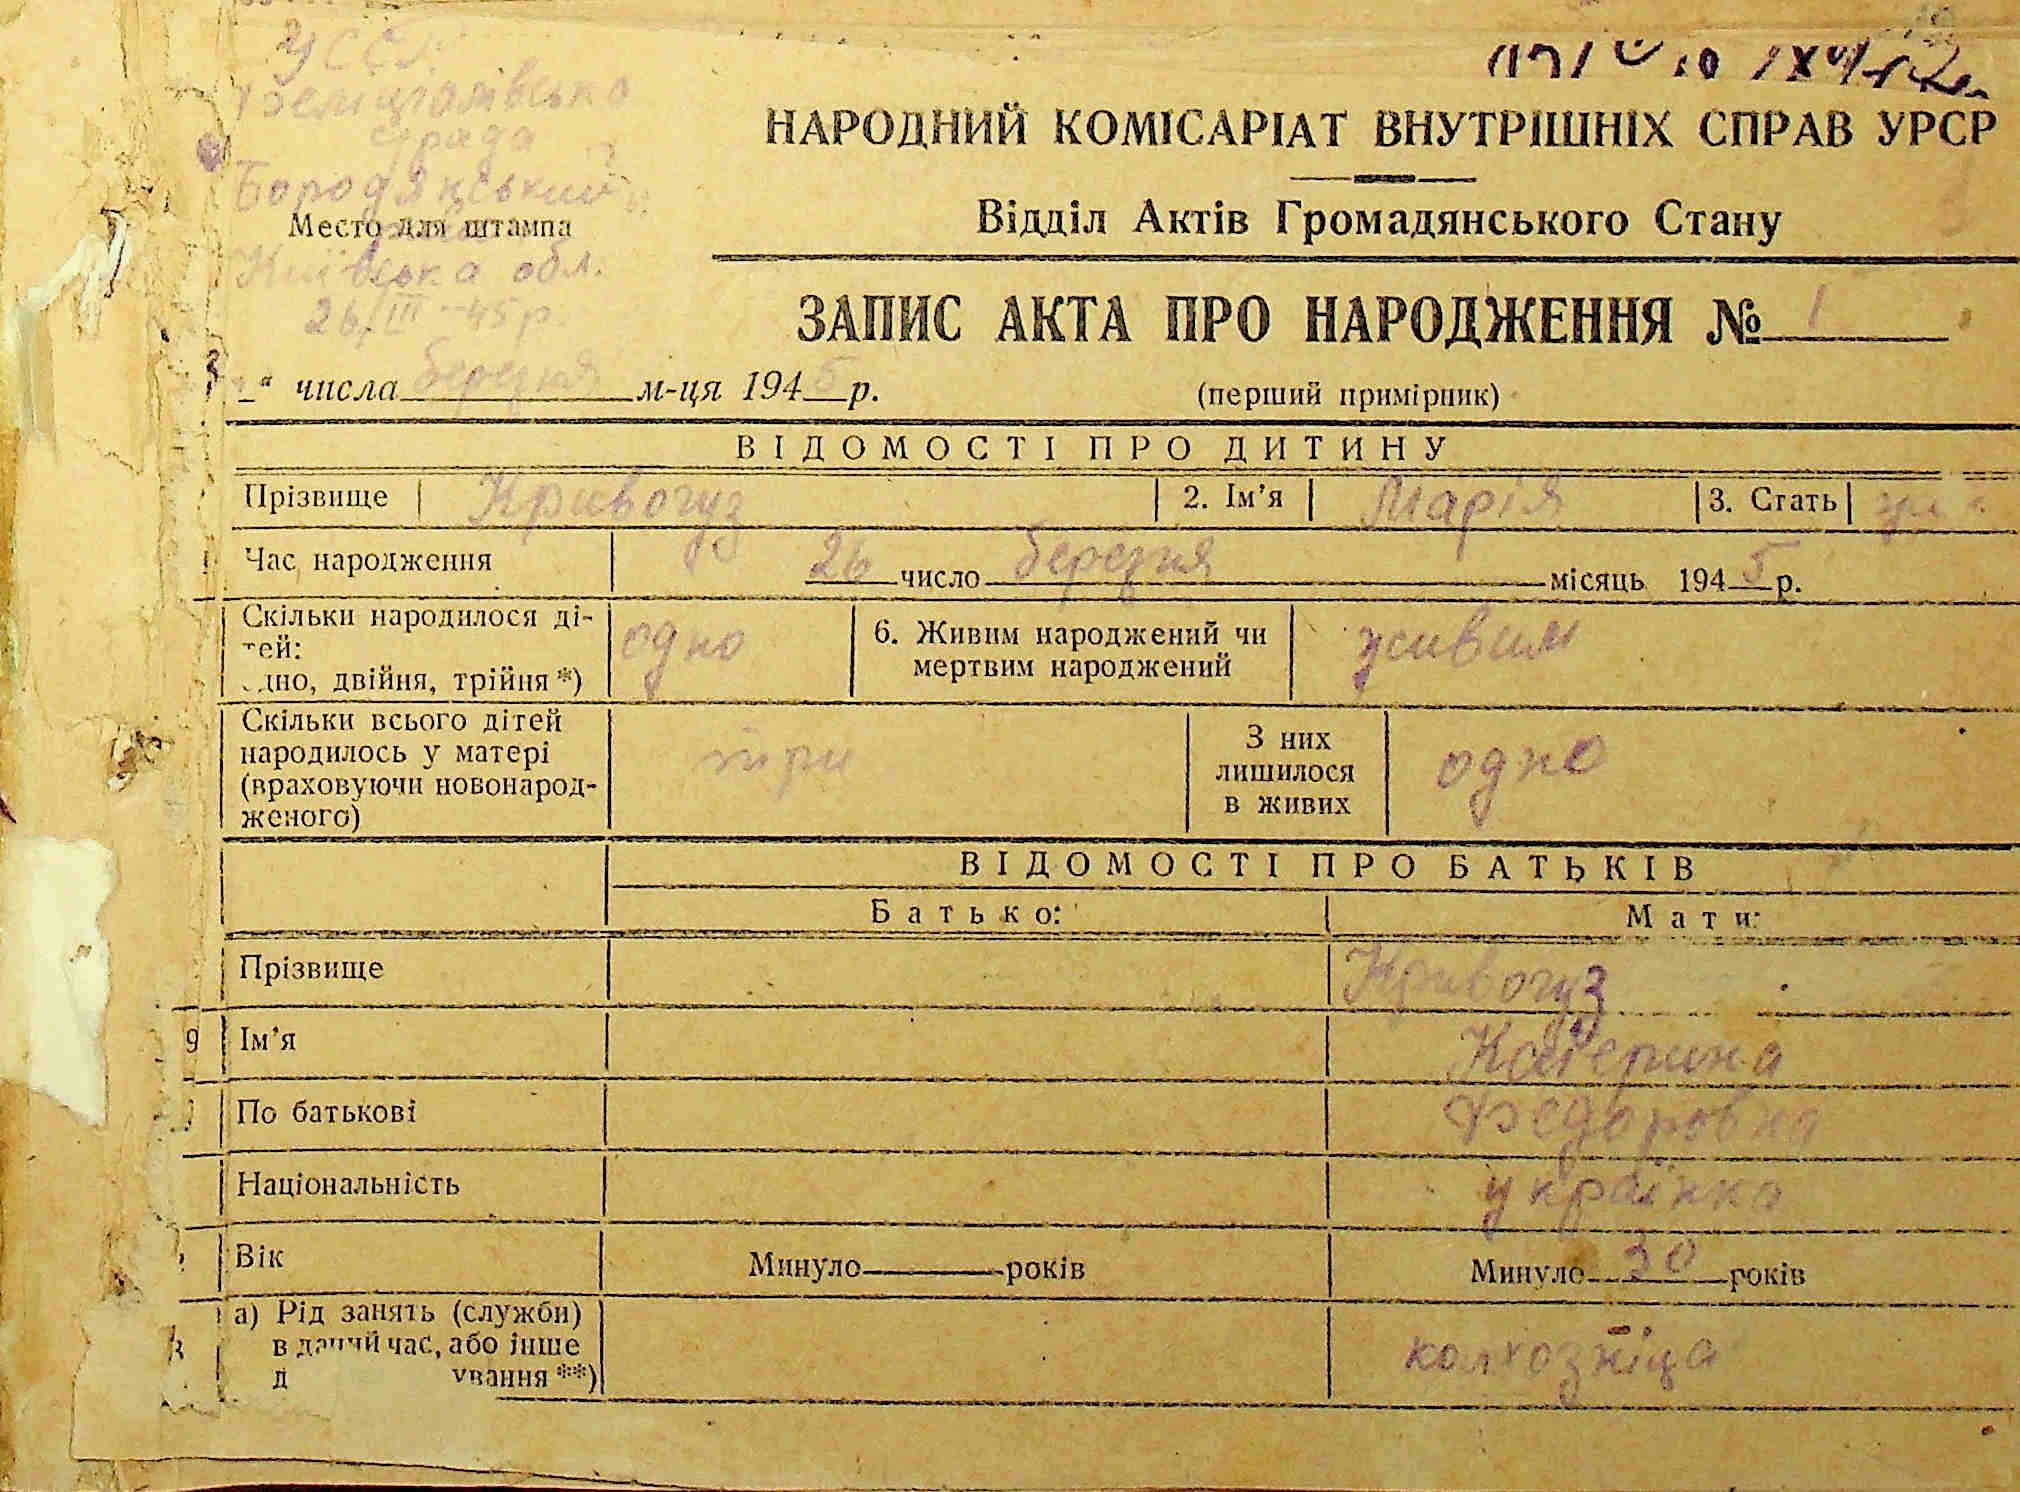 УССР
Феліціанівська
с/рада
Бородянський
Место для штампа
Київська обл.
26/III-45р.
НАРОДНИЙ КОМІСАРІАТ ВНУТРІШНІХ СПРАВ УРСР
Відділ Актів Громадянського Стану
ЗАПИС АКТА ПРО НАРОДЖЕННЯ № 1
“ числа березня м-ця 1945 р.
(перший примірник)
ВІДОМОСТІ ПРО ДИТИНУ
Прізвище Кривогуз 2. Ім’я Марія 3. Стать
Час народження 26 число березня місяць 1945 р.
Скільки народилося ді-
тей:
дно, двійня, трійня *)
одно
6. Живим народжений чи
мертвим народжений
живим
Скільки всього дітей
народилось у матері
(враховуючи новонарод-
женого)
три
З них
лишилося
в живих
одно
ВІДОМОСТІ ПРО БАТЬКІВ
Батько: Мати:
Прізвище Кривогуз
9 Ім’я Катерина
По батькові Федоровна
Національність українка
Вік Минуло рокі́в Минуло 30 років
а) Рід занять (служби)
в даний час, або інше
д ування **)
колхозніца